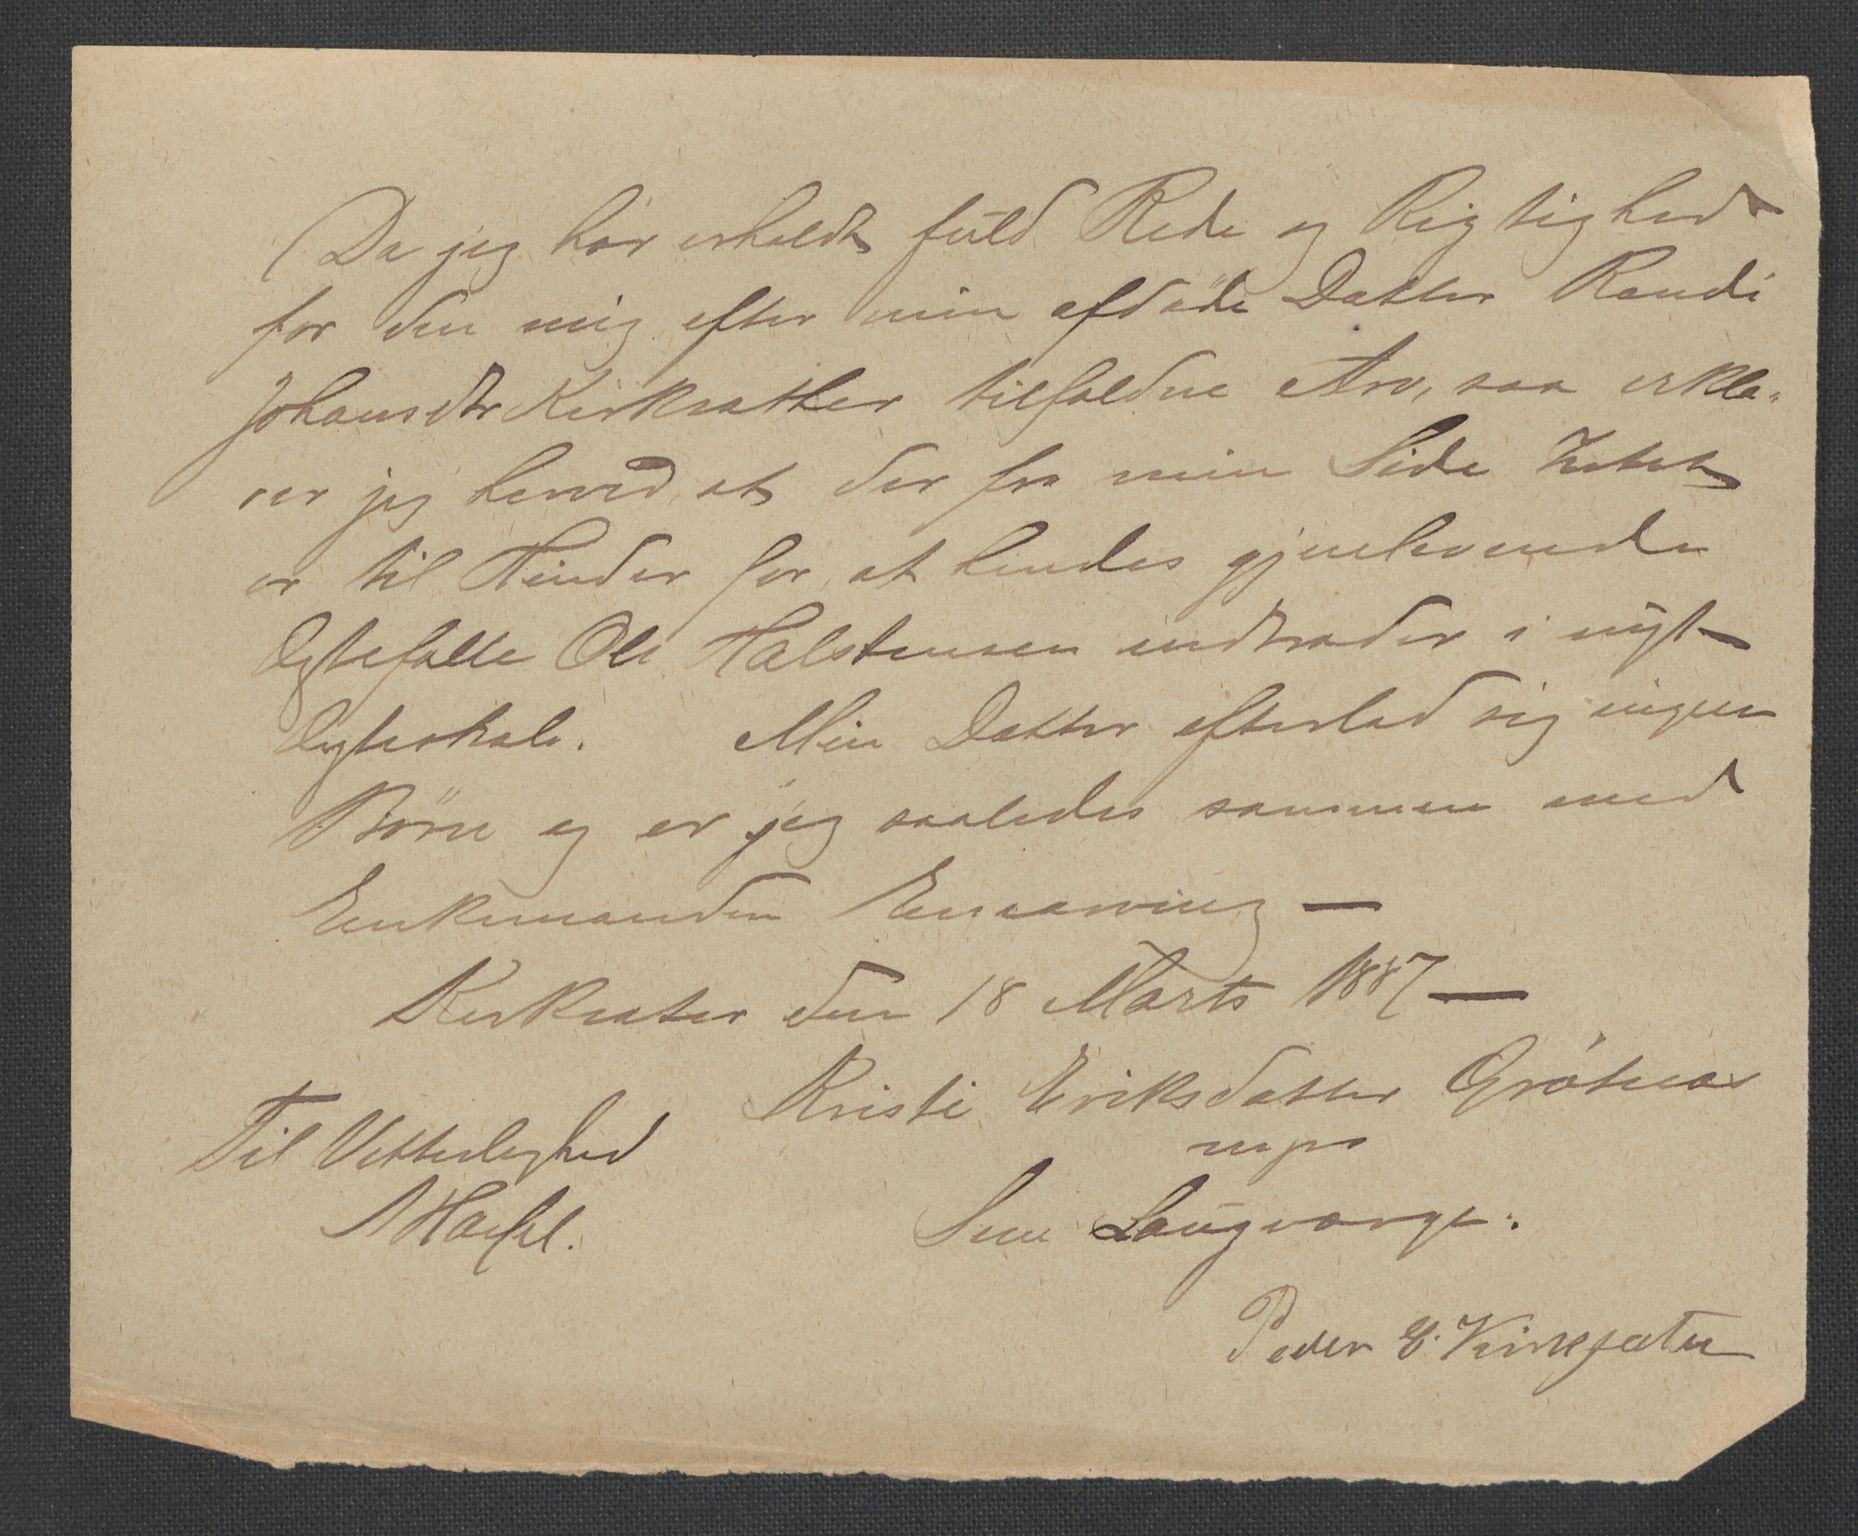 Da jeg har erholdt fuld Rede og Rigtighed
for den mig efter min afdöde Datter Randi
Johansdtr Kirksæther tilfaldne Arv, saa erklæ-
rer jeg herved, at der fra min Side Intet
er til Hinder for, at hendes gjenlevende
Ægtefælle Ole Halstensen indtræder i nyt
Ægteskab. Min Datter efterlod sig ingen
Börn og er jeg saaledes sammen med
Enkemanden Enearving —
Kirksæter den 18 Marts 1887 —
Kristi Eriksdatter Grötnæs
mps
Til Vitterlighed
Som Laugværge:
Peder E. Kirksæter